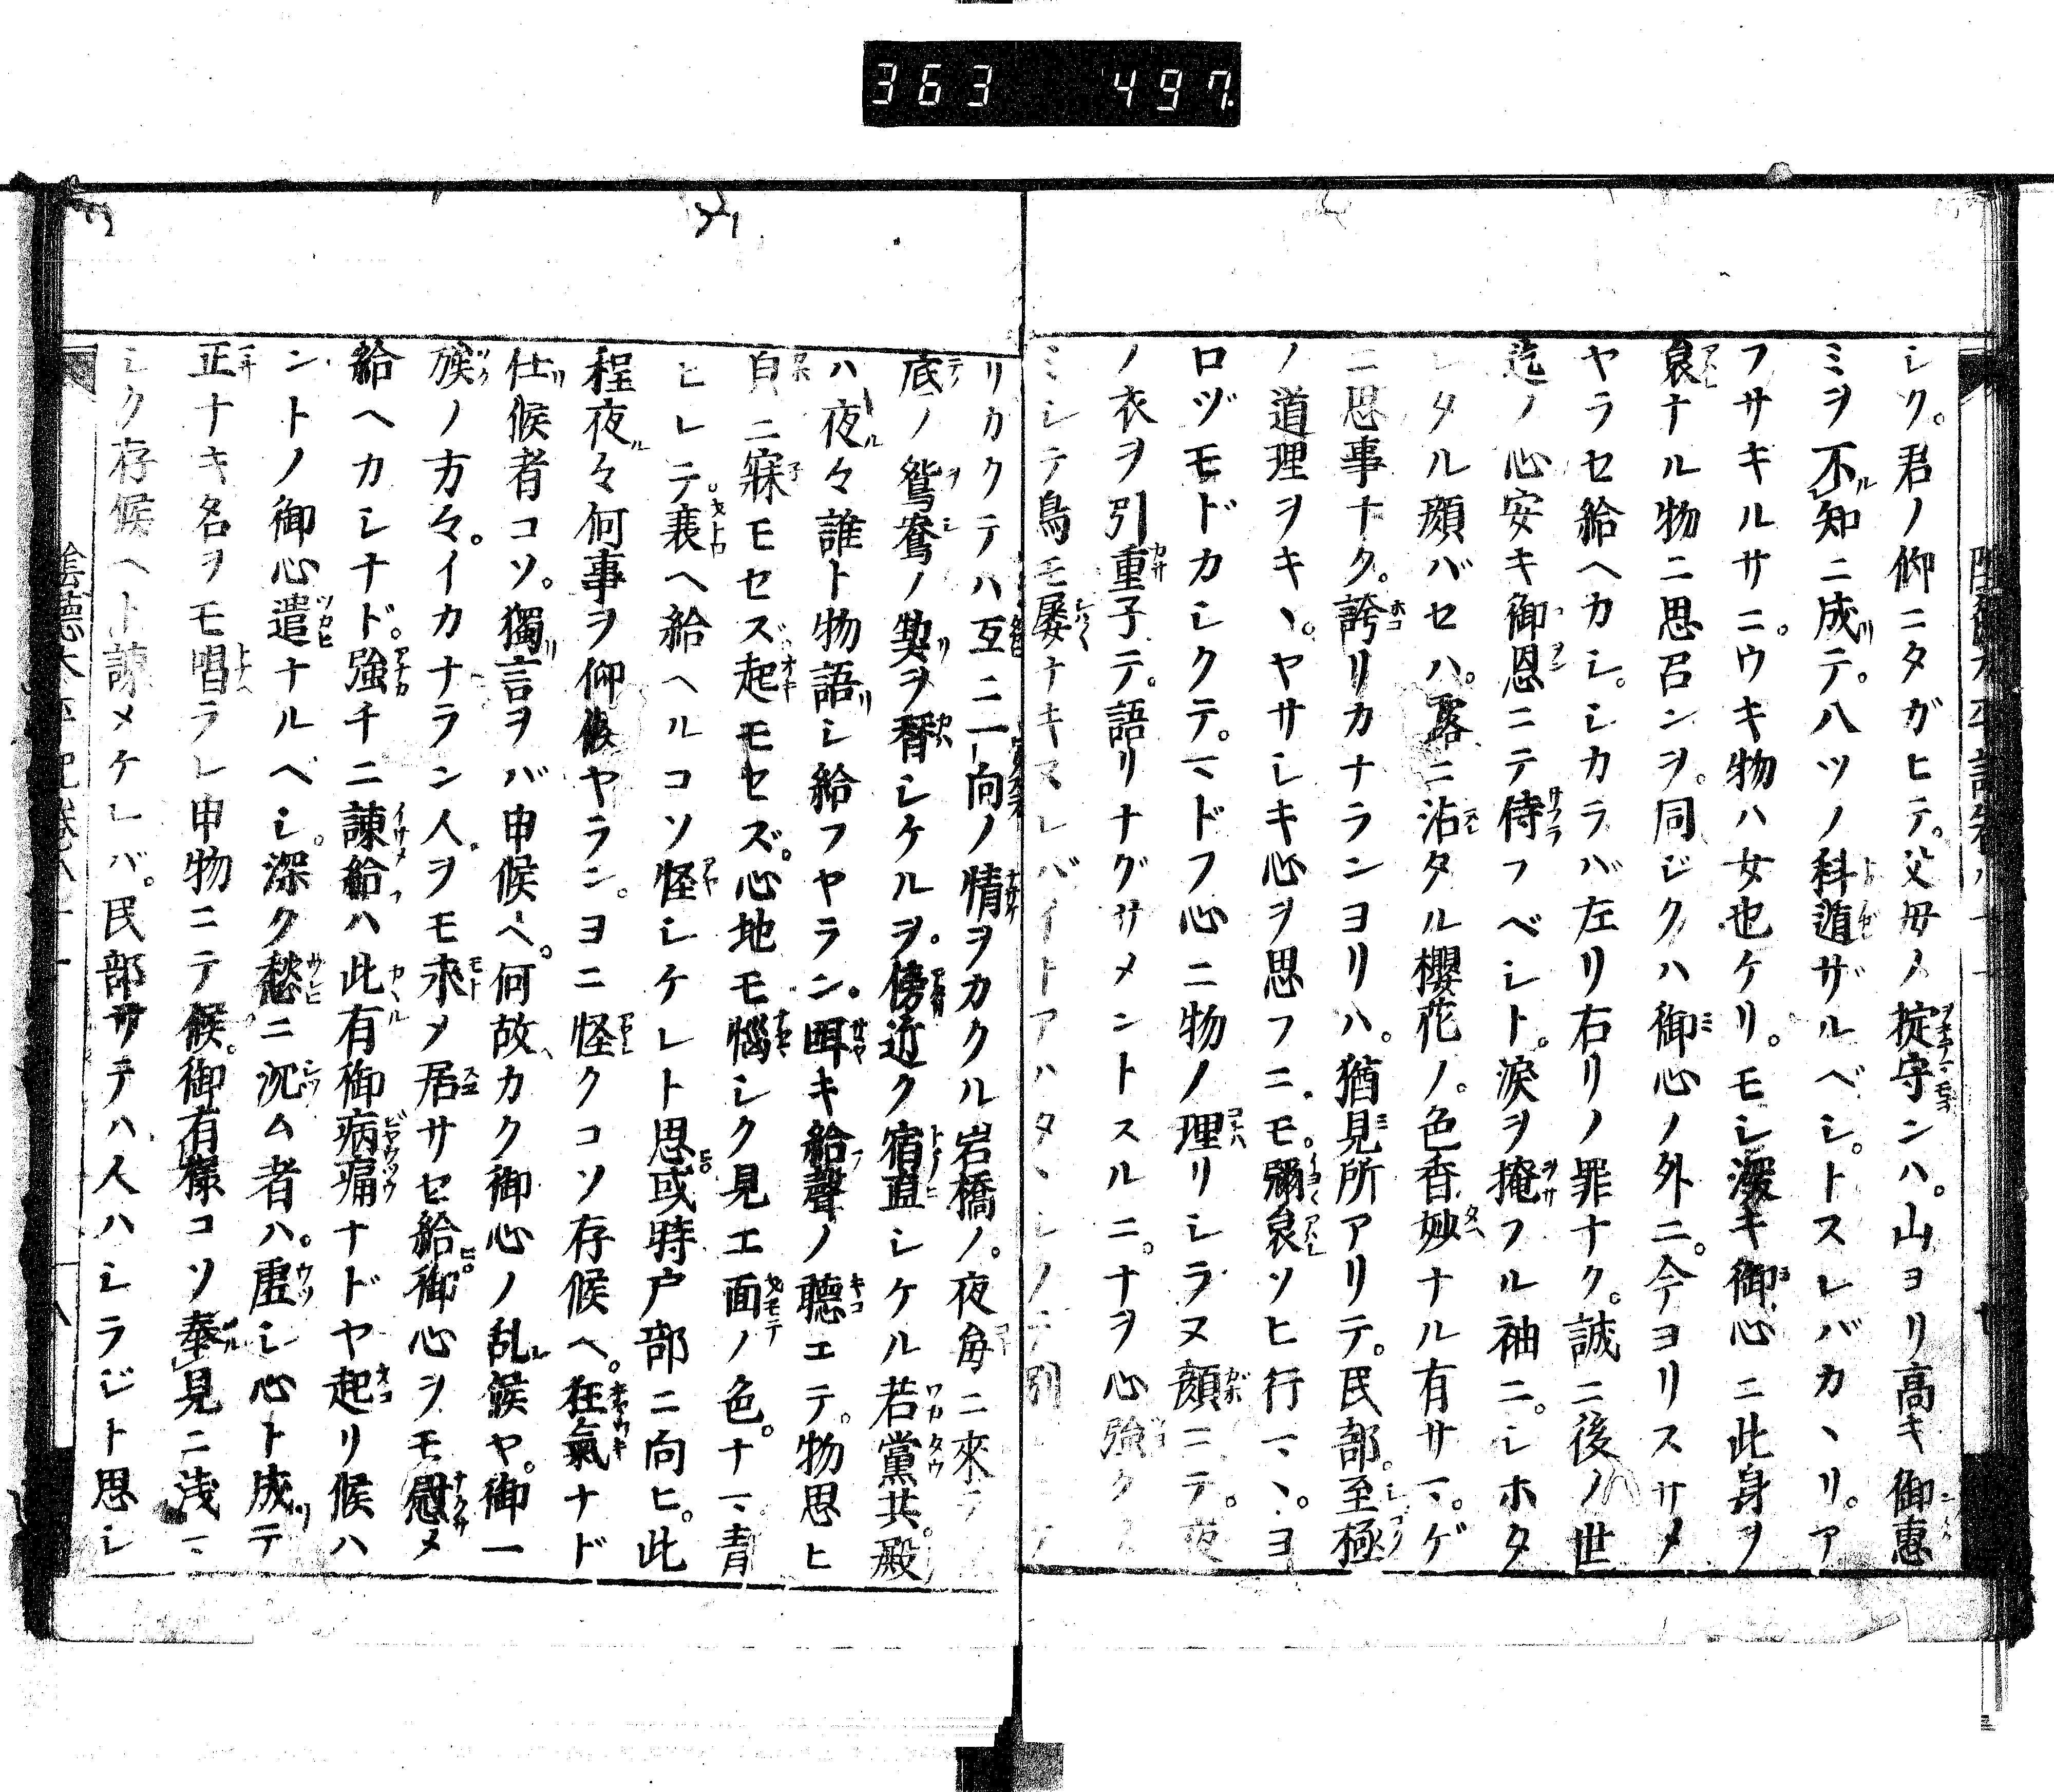 363 497
シク。君ノ仰ニタガヒテ。父母ノ掟守ンハ。山ヨリ高キ御惠
ミヲ不知ニ成テ。八ツノ科遁ザルベシ。トスレバカヽリ。ア
フサキルサニ。ウキ物ハ女也ケリ。モシ深キ御心ニ此身ヲ
哀ナル物ニ思召ンヲ。同ジクハ御心ノ外ニ。今ヨリスサメ
ヤラセ給ヘカシ。シカラバ左リ右リノ罪ナク。誠ニ後ノ世
迄ノ心安キ御恩ニテ侍フベシト。涙ヲ掩フル袖ニ。シホタ
レタル顔バセハ。露ニ沾タル櫻花ノ。色香妙ナル有サマ。ゲ
ニ思事ナク。誇リカナランヨリハ。猶見所アリテ。民部。至極
ノ道理ヲキヽ。ヤサシキ心ヲ思フニモ。彌哀ソヒ行マヽ。ヨ
ロヅモドカシクテ。マドフ心ニ物ノ理リシラヌ顔ニテ。夜
ノ衣ヲ引重子テ。語リナグサメントスルニ。ナヲ心強ク
ミシテ鳥モ屡ナキマレバイトアハタヽシ
リカクテハ互ニ一向ノ情ヲカクル岩橋ノ。夜毎ニ來テ
底ノ鴛鴦ノ契ヲ替シケルヲ。傍近ク宿直シケル若黨共。殿
ハ夜々誰ト物語シ給フヤラン。咡キ給聲ノ聽エテ。物思ヒ
皃ニ寐モセズ起モセズ。心地モ惱シク見エ面ノ色。ナマ青
ヒレテ。衰ヘ給ヘルコソ怪シケレト思或時戸部ニ向ヒ。此
程夜々何事ヲ仰候ヤラン。ヨニ怪クコソ存候ヘ。狂氣ナド
仕候者コソ。獨言ヲバ申候ヘ。何故カク御心ノ乱候ヤ。御一
族ノ方々。イカナラン人ヲモ求メ居サセ給御心ヲモ慰メ
給ヘカシナド。強チニ諫給ハ此有御病痛ナドヤ起リ候ハ
ントノ御心遣ナルベシ。深ク愁ニ沉ム者ハ。虚シ心ト成テ
正ナキ名ヲモ唱ラレ申物ニテ候。御有樣コソ奉見ニ浅マ
シク存候ヘト諫メケレバ。民部サテハ人ハシラジト思シ
陰德太平記卷八十一